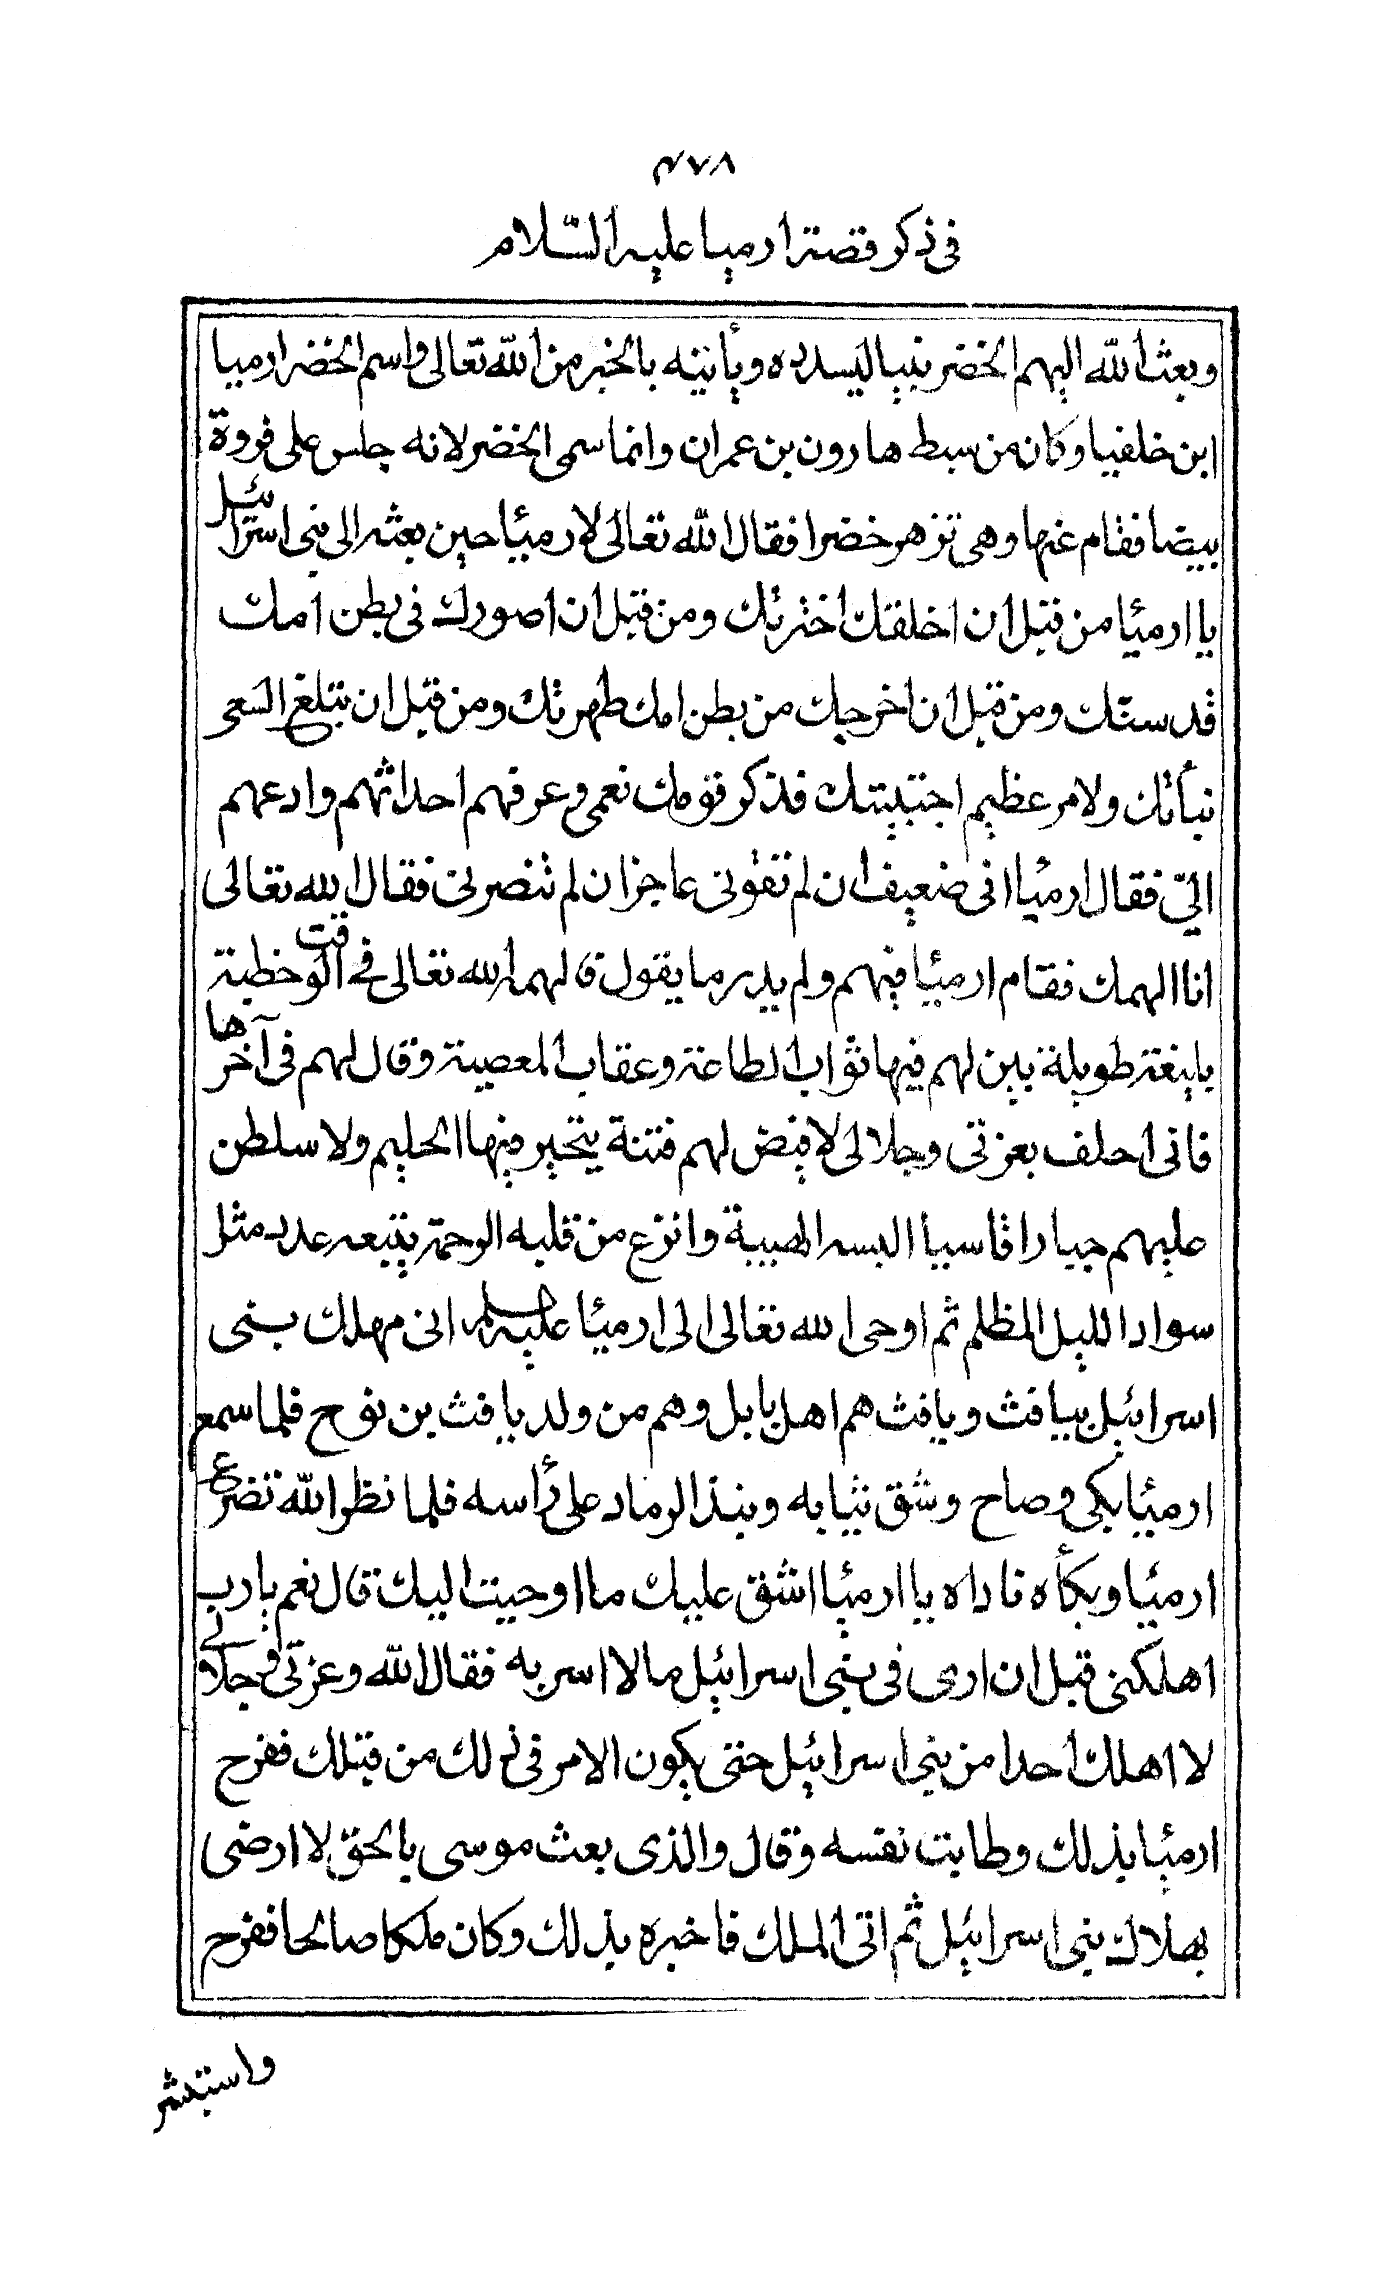 ٤٧٨
فى ذكر قصة ارميا عليه السّلام
وبعث الله اليهم الخضر نبيا ليسدده ويأتيه بالخبر من الله تعالى واسم الخضر ارميا
ابن خلفيا وكان من سبط هارون بن عمران وانما سمى الخضر لانه جلس على فروة
بيضا فقام عنها وهى تزهر خضرا فقال الله تعالى لارميا حين بعثه الى بنى اسرائيل
يا ارميا من قبل ان اخلقك اخترتك ومن قبل ان اصورك فى بطن امك
قدستك ومن قبل ان اخرجك من بطن امك طهرتك ومن قبل ان تبلغ السعى
نبأتك ولامر عظيم اجتبيتك فذكر قومك نعمى وعرفهم احداثهم وادعهم
الىّ فقال ارميا انى ضعيف ان لم تقونى عاجز ان لم تنصرنى فقال الله تعالى
انا الهمك فقام ارميا فيهم ولم يدر ما يقول فالهمه الله تعالى فى الوقت خطبة
بليغة طويلة بين لهم فيها ثواب الطاعة وعقاب المعصية وقال لهم فى آخرها
فانى احلف بعزتى وجلالى لاقيض لهم فتنة يتحير فيها الحليم ولاسلطن
عليهم جبارا قاسيا البسه الهيبة وانزع من قلبه الرحمة يتبعه عدد مثل
سواد الليل المظلم ثم اوحى الله تعالى الى ارميا عليه السلام انى مهلك بنى
اسرائيل بيافث ويافث هم اهل بابل وهم من ولد يافث بن نوح فلما سمع
ارميا بكى وصاح وشق ثيابه ونبذ الرماد على رأسه فلما نظر الله تضرع
ارميا وبكأه ناداه يا ارميا اشق عليك ما اوحيت اليك قال نعم يا رب
اهلكنى قبل ان ارى فى بنى اسرائيل ما لا اسر به فقال الله وعزتى وجلالى
لا اهلك احدا من بنى اسرائيل حتى يكون الامر فى ذلك من قبلك ففرح
ارميا بذلك وطابت نفسه وقال والذى بعث موسى بالحق لا ارضى
بهلاك بنى اسرائيل ثم اتى الملك فاخبره بذلك وكان ملكا صالحا ففرح
واستبشر